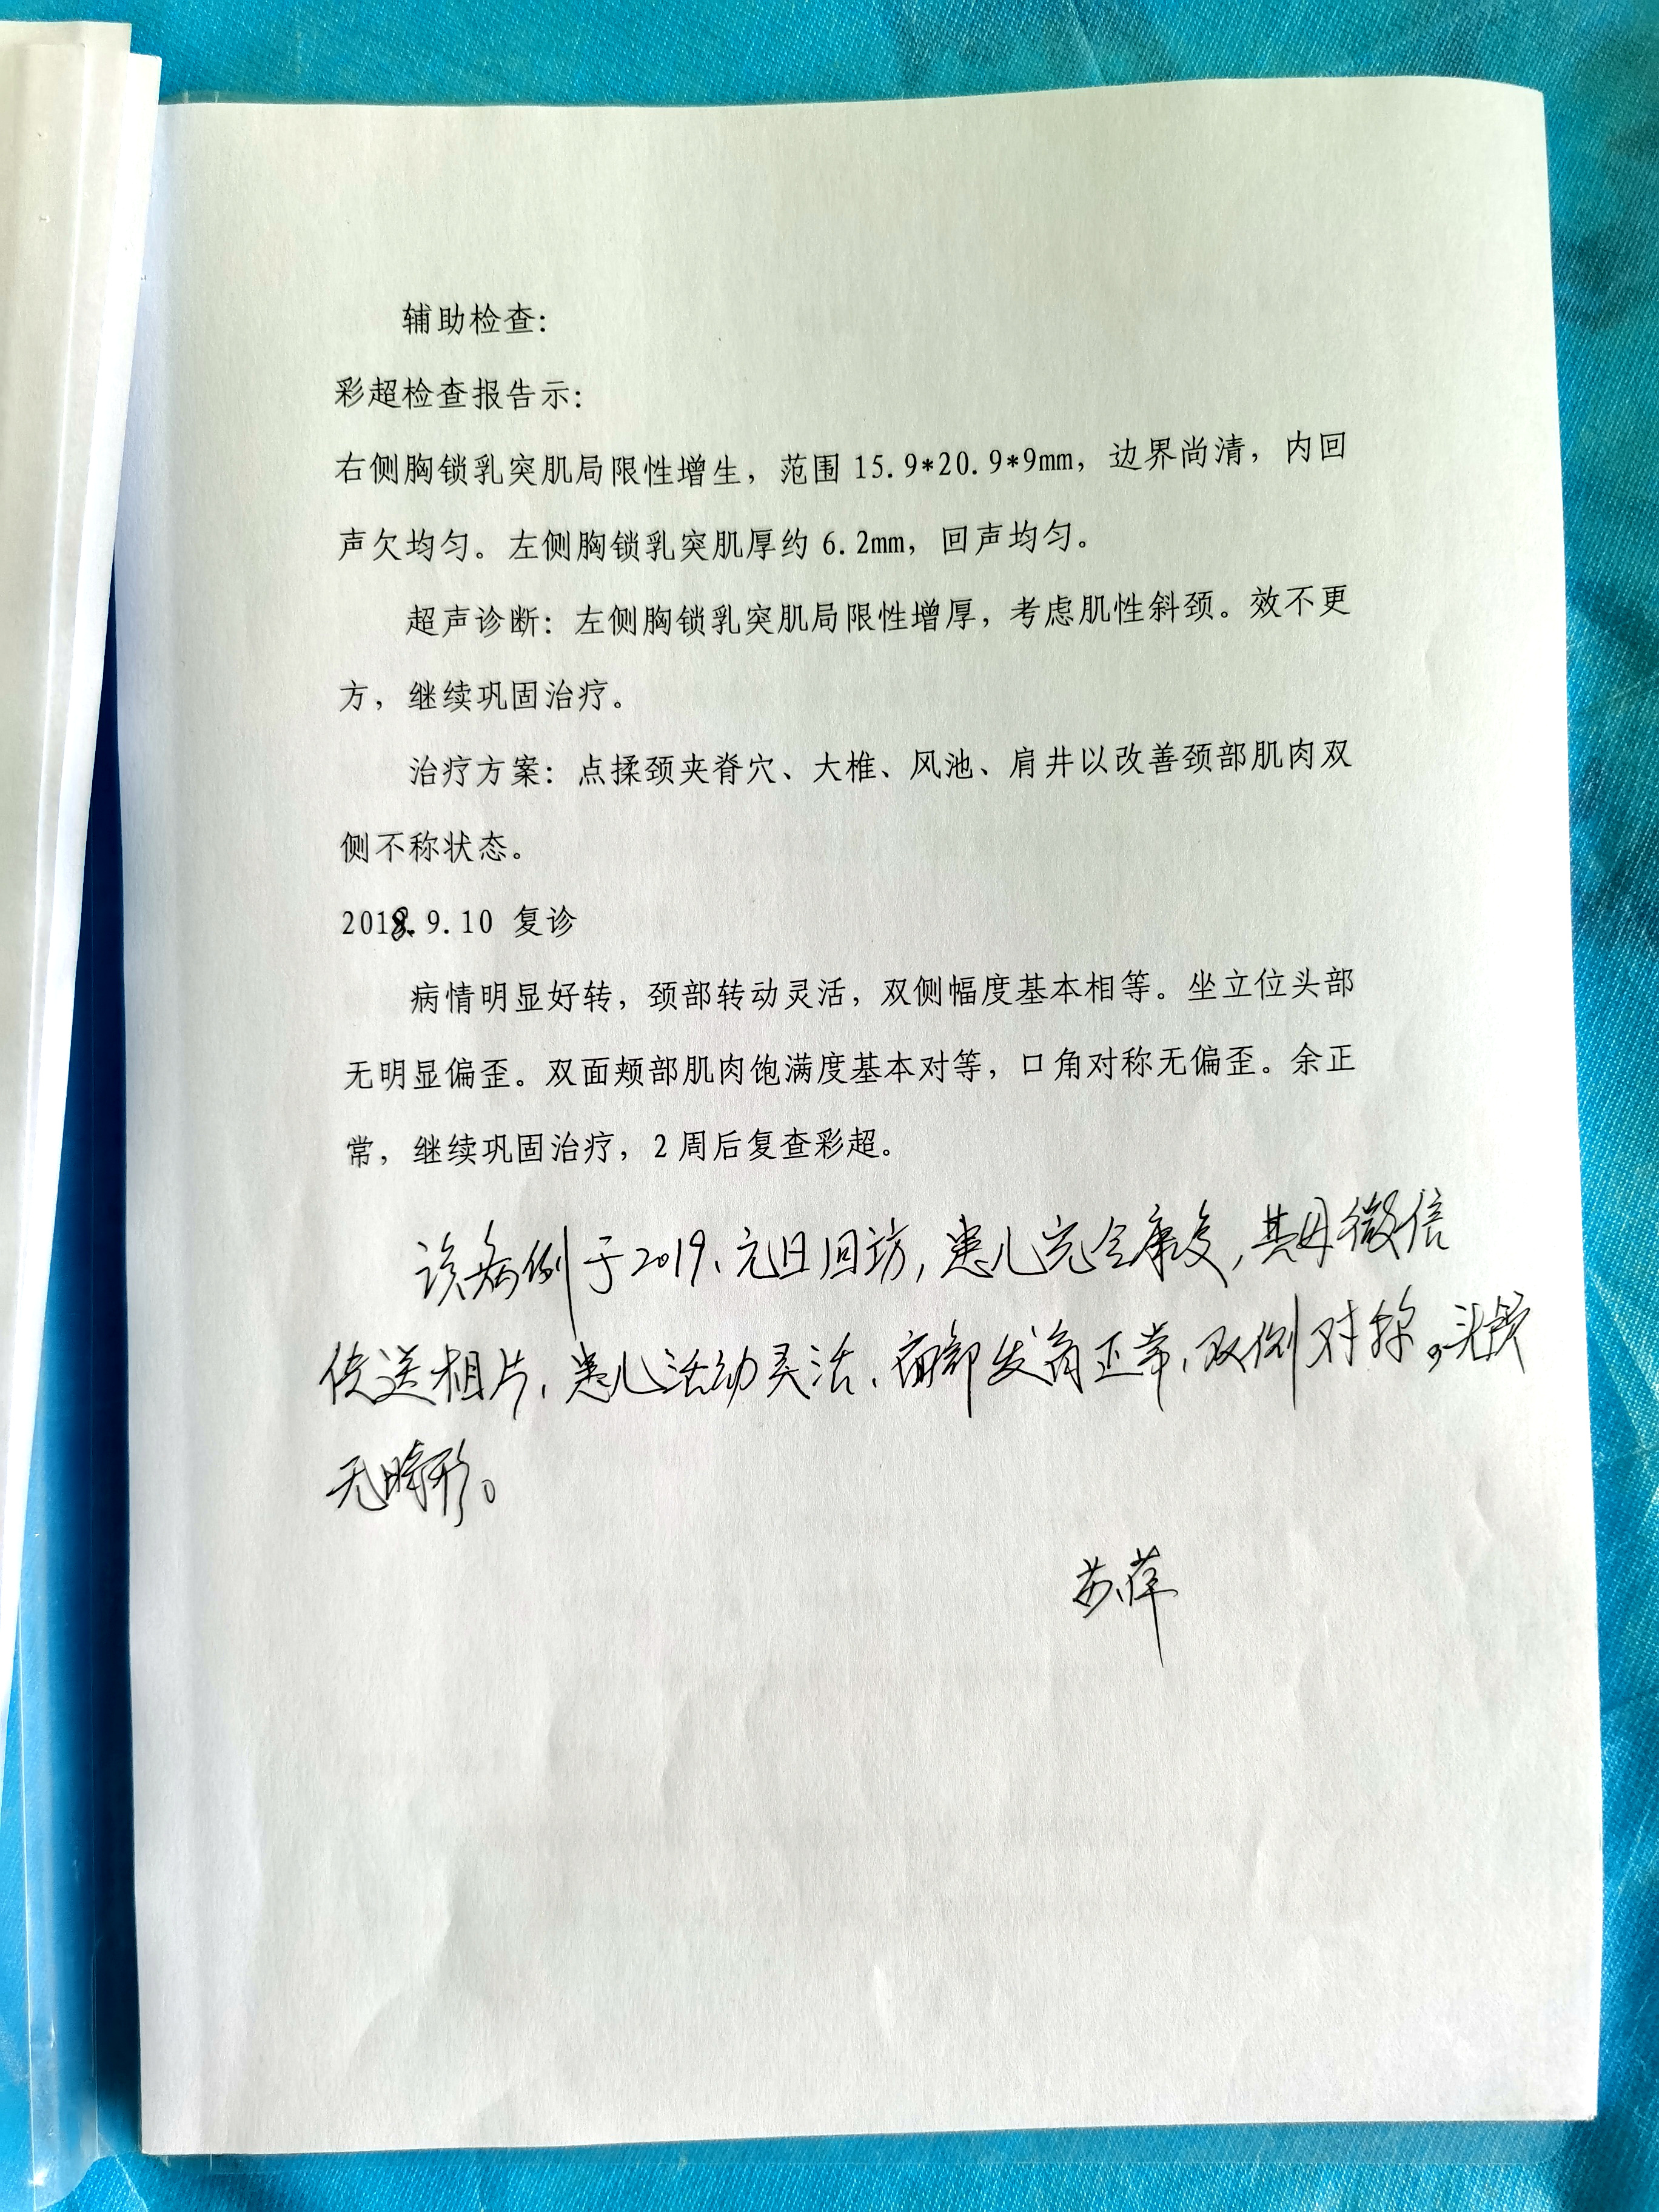 辅助检查：
彩超检查报告示：
右侧胸锁乳突肌局限性增生，范围 15.9*20.9*9mm，边界尚清，内回
声欠均匀。左侧胸锁乳突肌厚约 6.2mm，回声均匀。
超声诊断：左侧胸锁乳突肌局限性增厚，考虑肌性斜颈。效不更
方，继续巩固治疗。
治疗方案：点揉颈夹脊穴、大椎、风池、肩井以改善颈部肌肉双
侧不称状态。
2018.9.10 复诊
病情明显好转，颈部转动灵活，双侧幅度基本相等。坐立位头部
无明显偏歪。双面颊部肌肉饱满度基本对等，口角对称无偏歪。余正
常，继续巩固治疗，2 周后复查彩超。
该病例于2019、元旦回访，患儿完全康复，其母微信
传送相片、患儿活动灵活、面部发育正常、双侧对称。头颅
无畸形。
苏萍